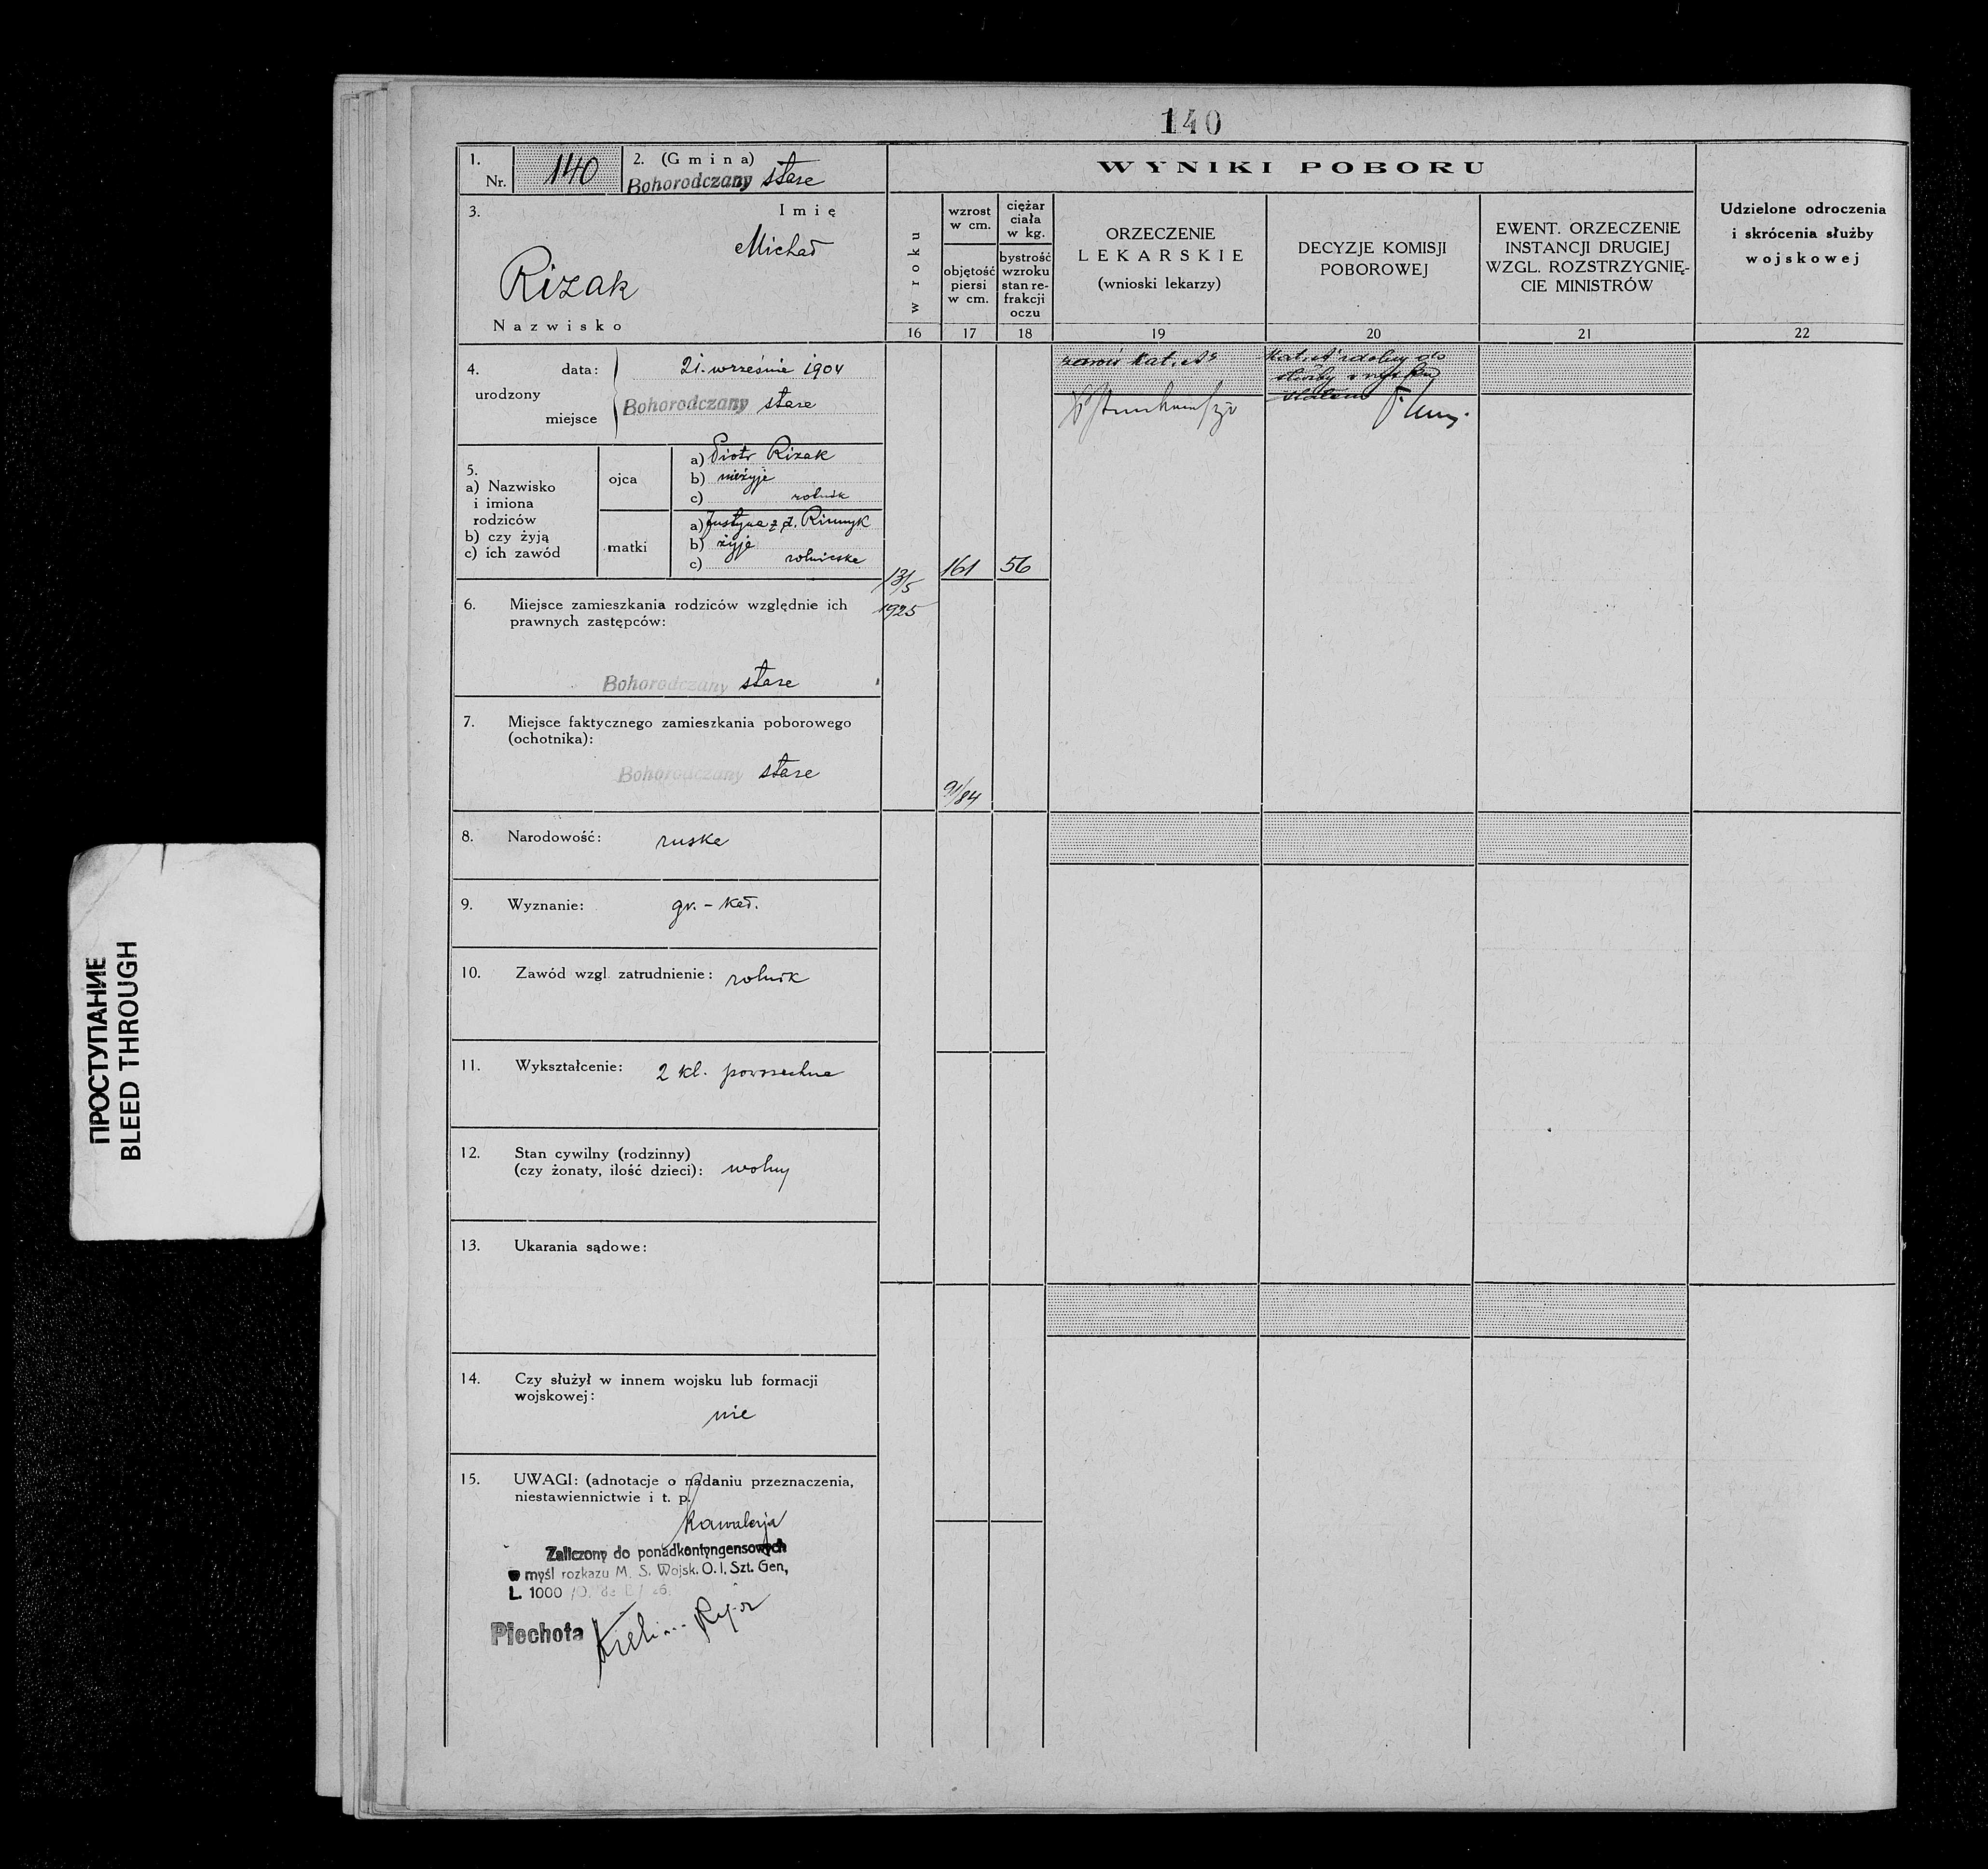 140
1. Nr. 140
2. (Gmina)
Bohorodczany stare
3. Imię
Michał
Rizak
Nazwisko
4. urodzony
data: 21. wrzeẛnia 1904
miejsce Bohorodczany stare
5.
a) Nazwisko
i imiona
rodziców
b) czy żyją
c) ich zawód
ojca
a) Piotr Rizak
b) nieżyje
c) rolnik
matki
a) Justyna z d.
b) żyje
c) rolniczka
6. Miejsce zamieszkania rodziców względnie ich
prawnych zastępców:
Bohorodczany stare
7. Miejsce faktycznego zamieszkania poborowego
(ochotnika):
Bohorodczany stare
8. Narodowość: ruska
9. Wyznanie: gr. - kat.
10. Zawód wzgl. zatrudnienie: rolnik
11. Wykształcenie: 2 kl. powszechna
12. Stan cywilny (rodzinny)
(czy żonaty, ilość dzieci): wolny
13. Ukarania sądowe:
14. Czy służył w innem wojsku lub formacji
wojskowej:
nie
15. UWAGI: (adnotacje o nadaniu przeznaczenia,
niestawiennictwie i t. p.
kawalerja
Zaliczony do ponadkontyngensowych
w myśl rozkazu M. S. Wojsk. O. I. Szt. Gen,
L. 1000
Piechota
WYNIKI POBORU
w roku
16
wzrost
w cm.
objętość
piersi
w cm.
17
ciężar
ciała
w kg.
bystrość
wzroku
stan re-
frakcji
oczu
18
ORZECZENIE
LEKARSKIE
(wnioski lekarzy)
19
DECYZJE KOMISJI
POBOROWEJ
20
EWENT. ORZECZENIE
INSTANCJI DRUGIEJ
WZGL. ROZSTRZYGNIĘ-
CIE MINISTRÓW
21
Udzielone odroczenia
i skrócenia służby
wojskowej
22
13/5
1925
161
56
91/84
kat. A
Kat. A zdolny do
służby
ПРОСТУПАНИЕ
BLEED THROUGH